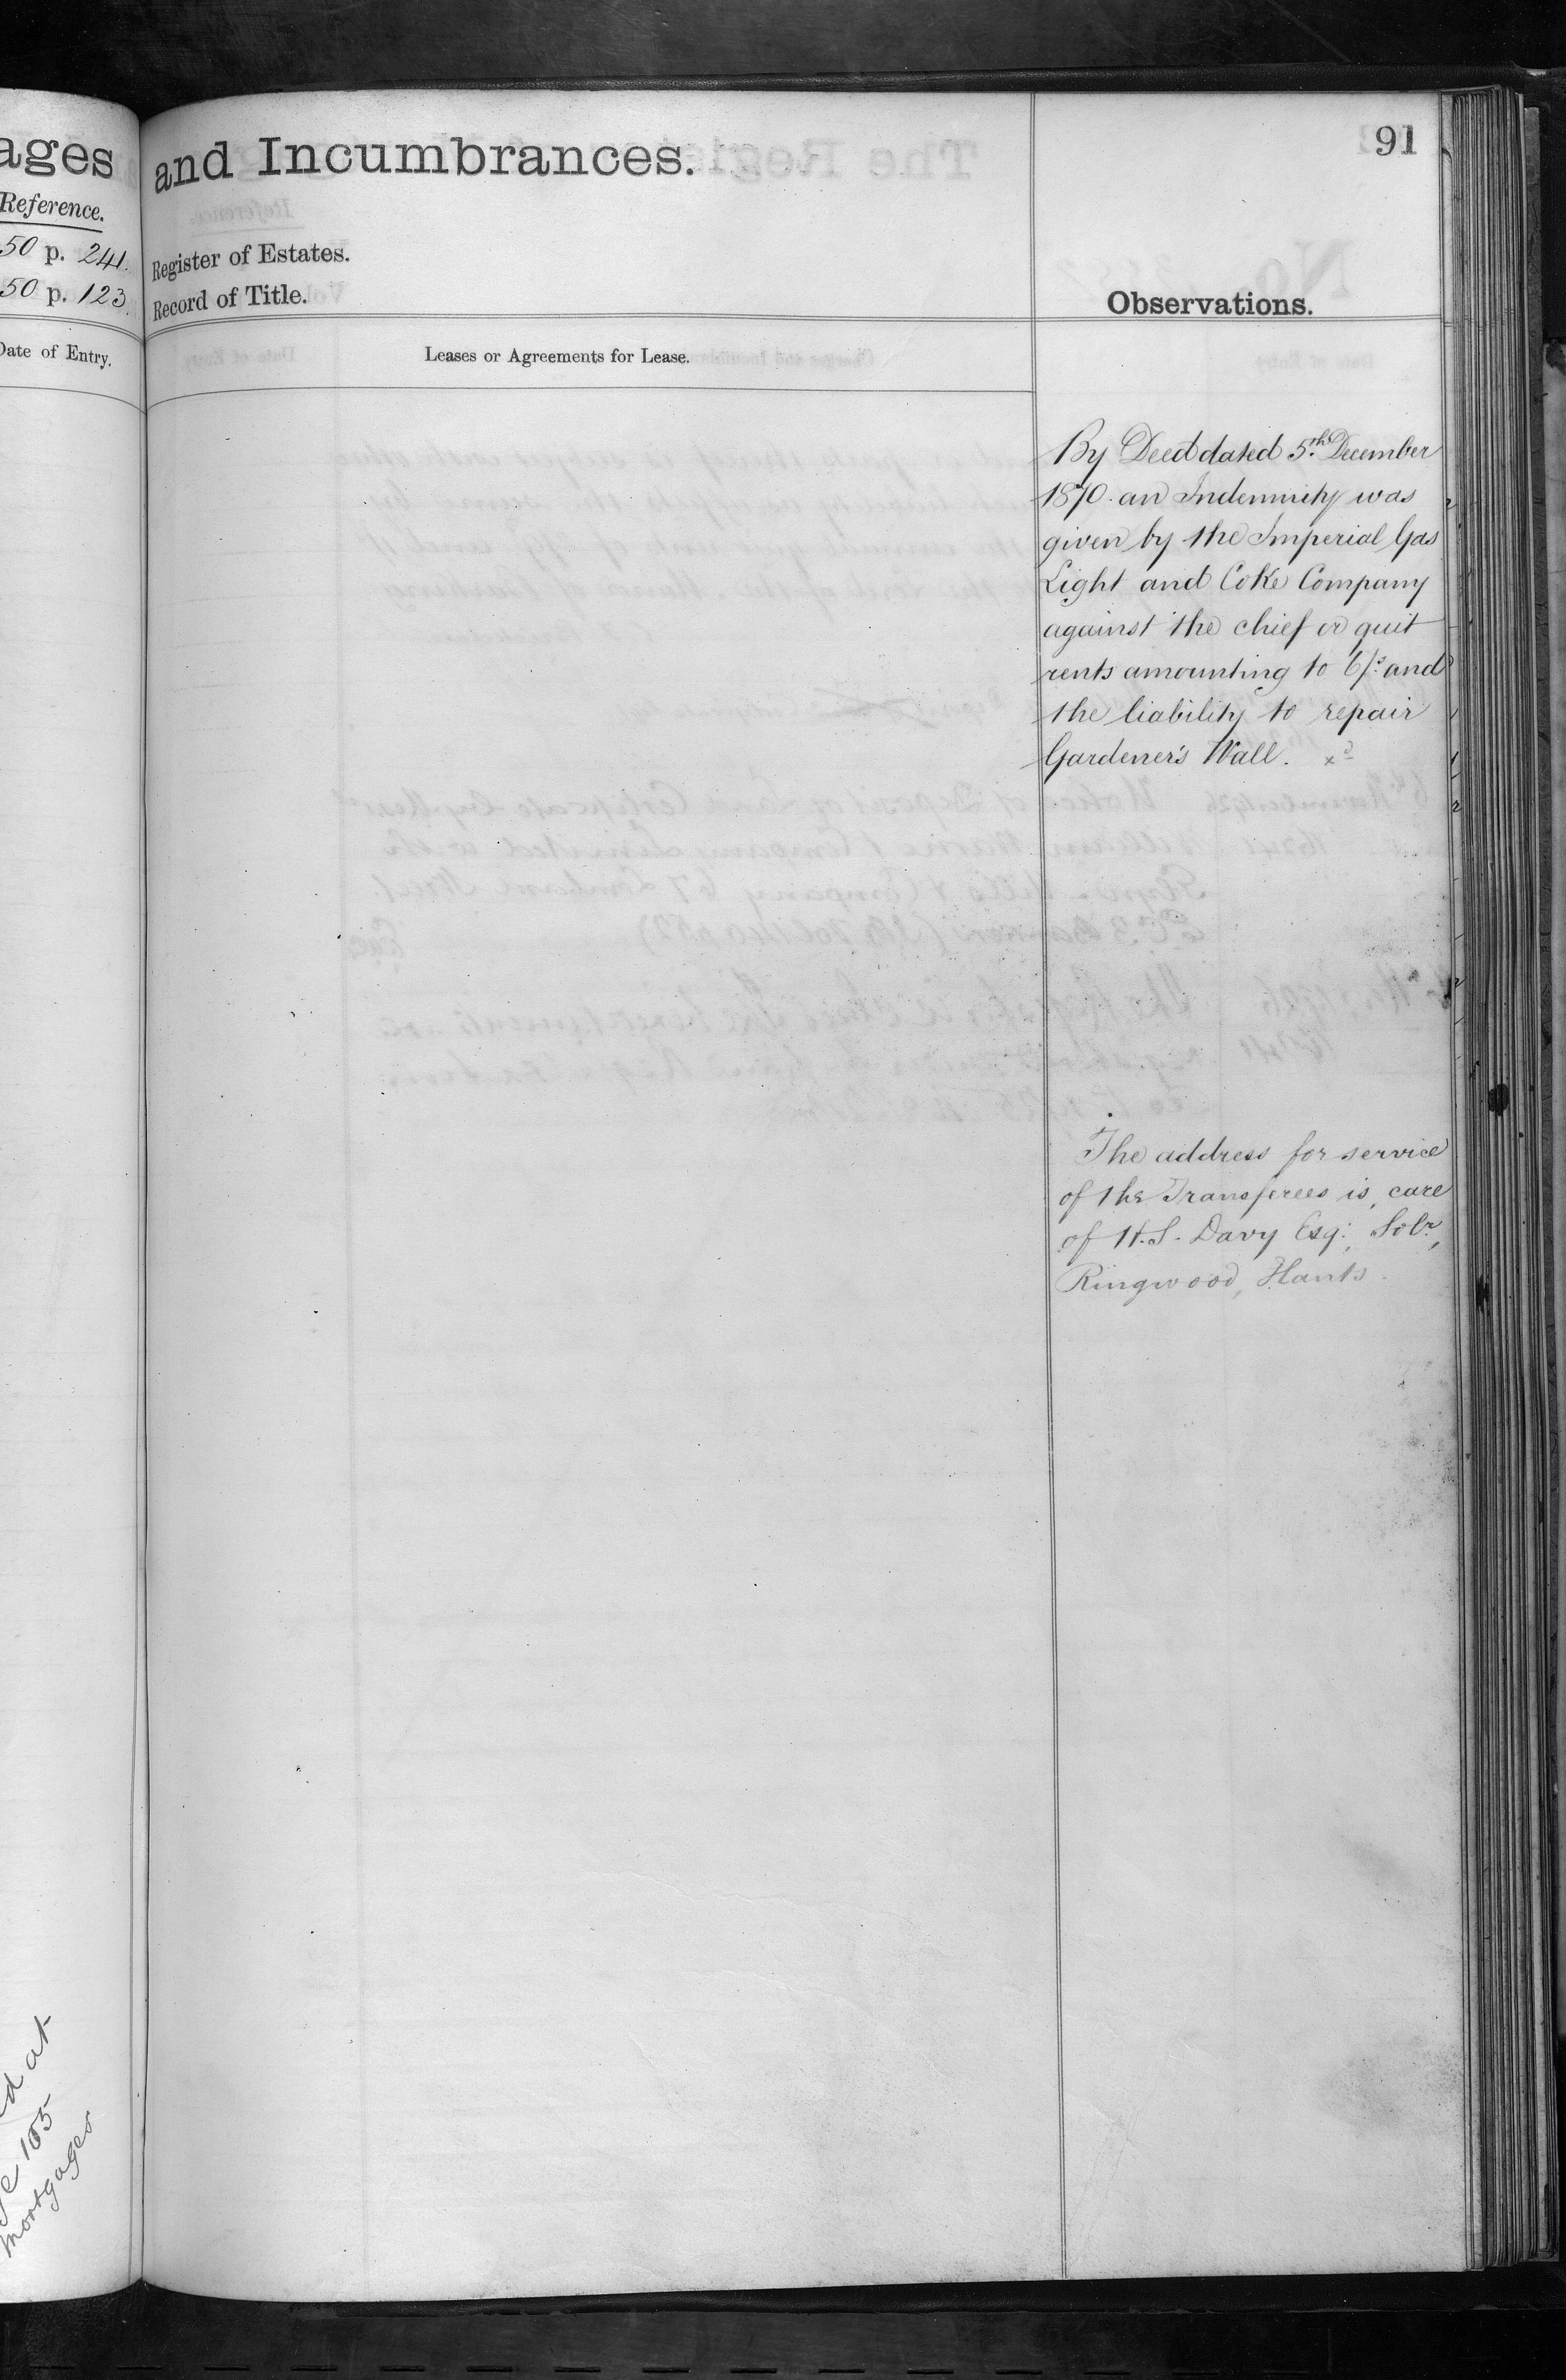 ages
Reference.
50 p. 241.
50 p. 123.
Date of Entry.
and Incumbrances.
91
Register of Estates.
Record of Title.
Observations.
Leases or Agreements for Lease.
By Deed dated 5th December
1870. an Indemnity was
given by the Imperial Gas
Light and Coke Company
against the chief or quit
rents amounting to 6/s and
the liability to repair
Gardener's Wall.
The address for service
of the Transferees is, care
of H.S. Davy Esq:, Solr,
Ringwood, Hants.
d at
e 105
mortgages